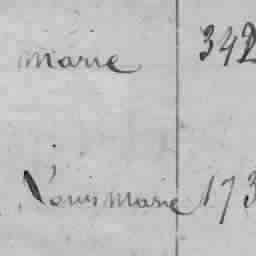 marie 342
Louis Marie 173